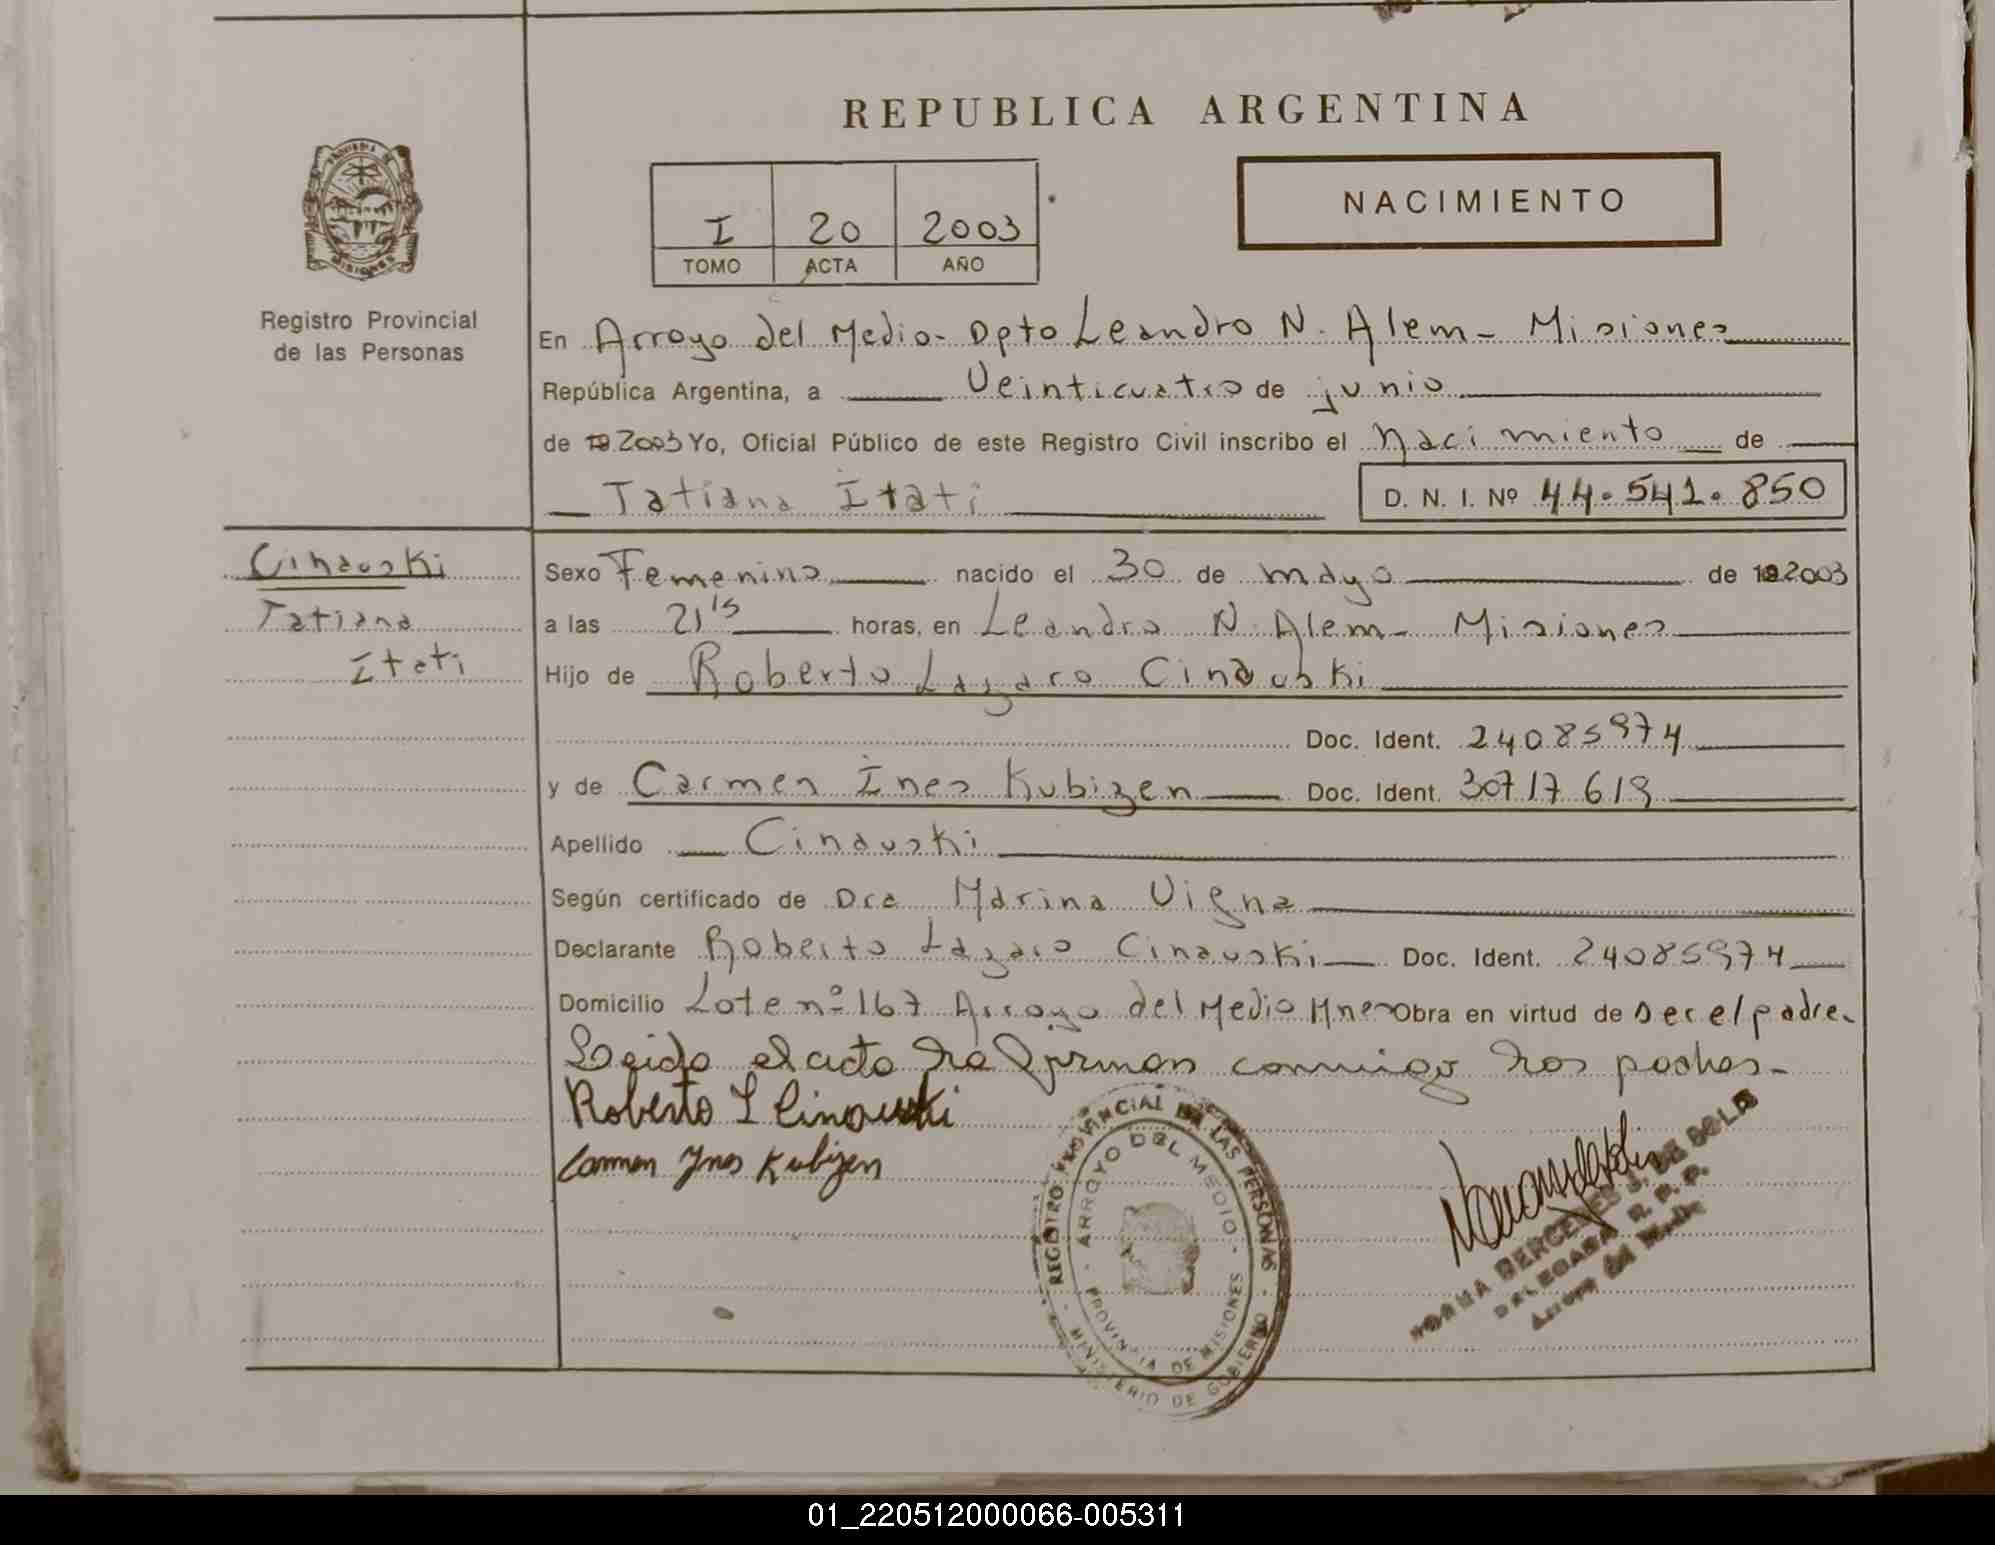 REPUBLICA ARGENTINA
NACIMIENTO
I 20 2003
TOMO ACTA AÑO
PROVINCIA DE
MISIONES
Registro Provincial
de las Personas
En Arroyo del Medio - Dpto Leandro N. Alem - Misiones
República Argentina, a Veinticuatro de junio
de 19 2003 Yo, Oficial Público de este Registro Civil inscribo el Nacimiento de
Tatiana Itati
D. N. I. Nº 44.541.850
Cinauski
Tatiana
Itati
Sexo Femenino nacido el 30 de mayo de 19 2003
a las 21 15 horas, en Leandro N. Alem - Misiones
Hijo de Roberto Lazaro Cinauski
Doc. Ident. 24085974
y de Carmen Ines Kubizen Doc. Ident. 30717619
Apellido Cinauski
Según certificado de Dra Marina Vigna
Declarante Roberto Lazaro Cinauski Doc. Ident. 24085974
Domicilio Lote nº 167 Arroyo del Medio Mnes Obra en virtud de Ser el padre.
Leida el acta la firman conmigo los padres -
Roberto L Cinauski
Carmen Ynes Kubizen
REGISTRO PROVINCIAL DE LAS PERSONAS - MINISTERIO DE GOBIERNO -
- ARROYO DEL MEDIO - PROVINCIA DE MISIONES
NORMA BERCEDES J. DE BOLA
DELEGADA R. P. P.
Arroyo del Medio
01_220512000066-005311